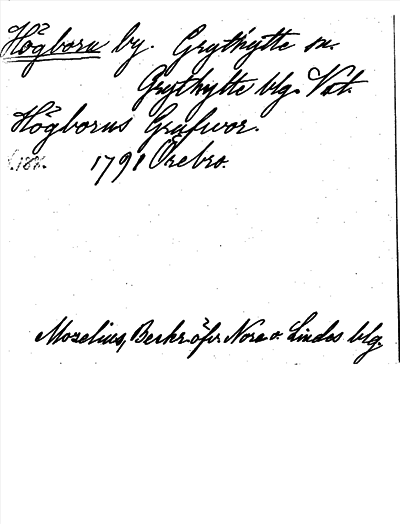 Högborn by. Grythytte sn.
Grythytte blg. Vstl.
Högborns Grufwor.
1791 Örebro.
Mozelius, Beskr. öfv. Nora o. Lindes blg.